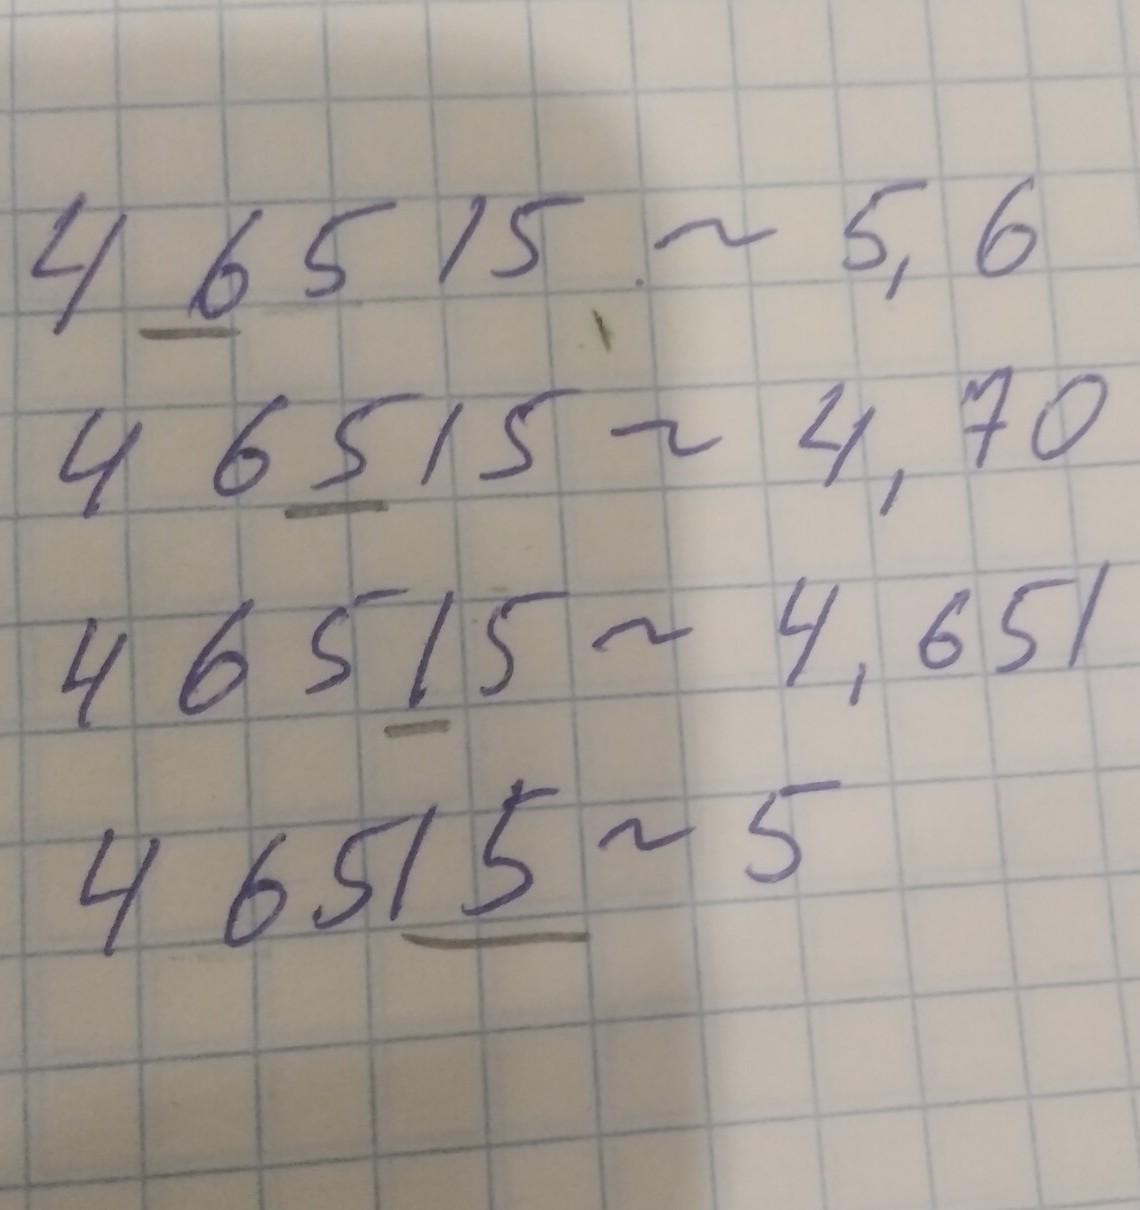 4 6 5 1 5 ~ 5,6
4 6 5 1 5 ~ 4,70
4 6 5 1 5 ~ 4,651
4 6 5 1 5 ~ 5